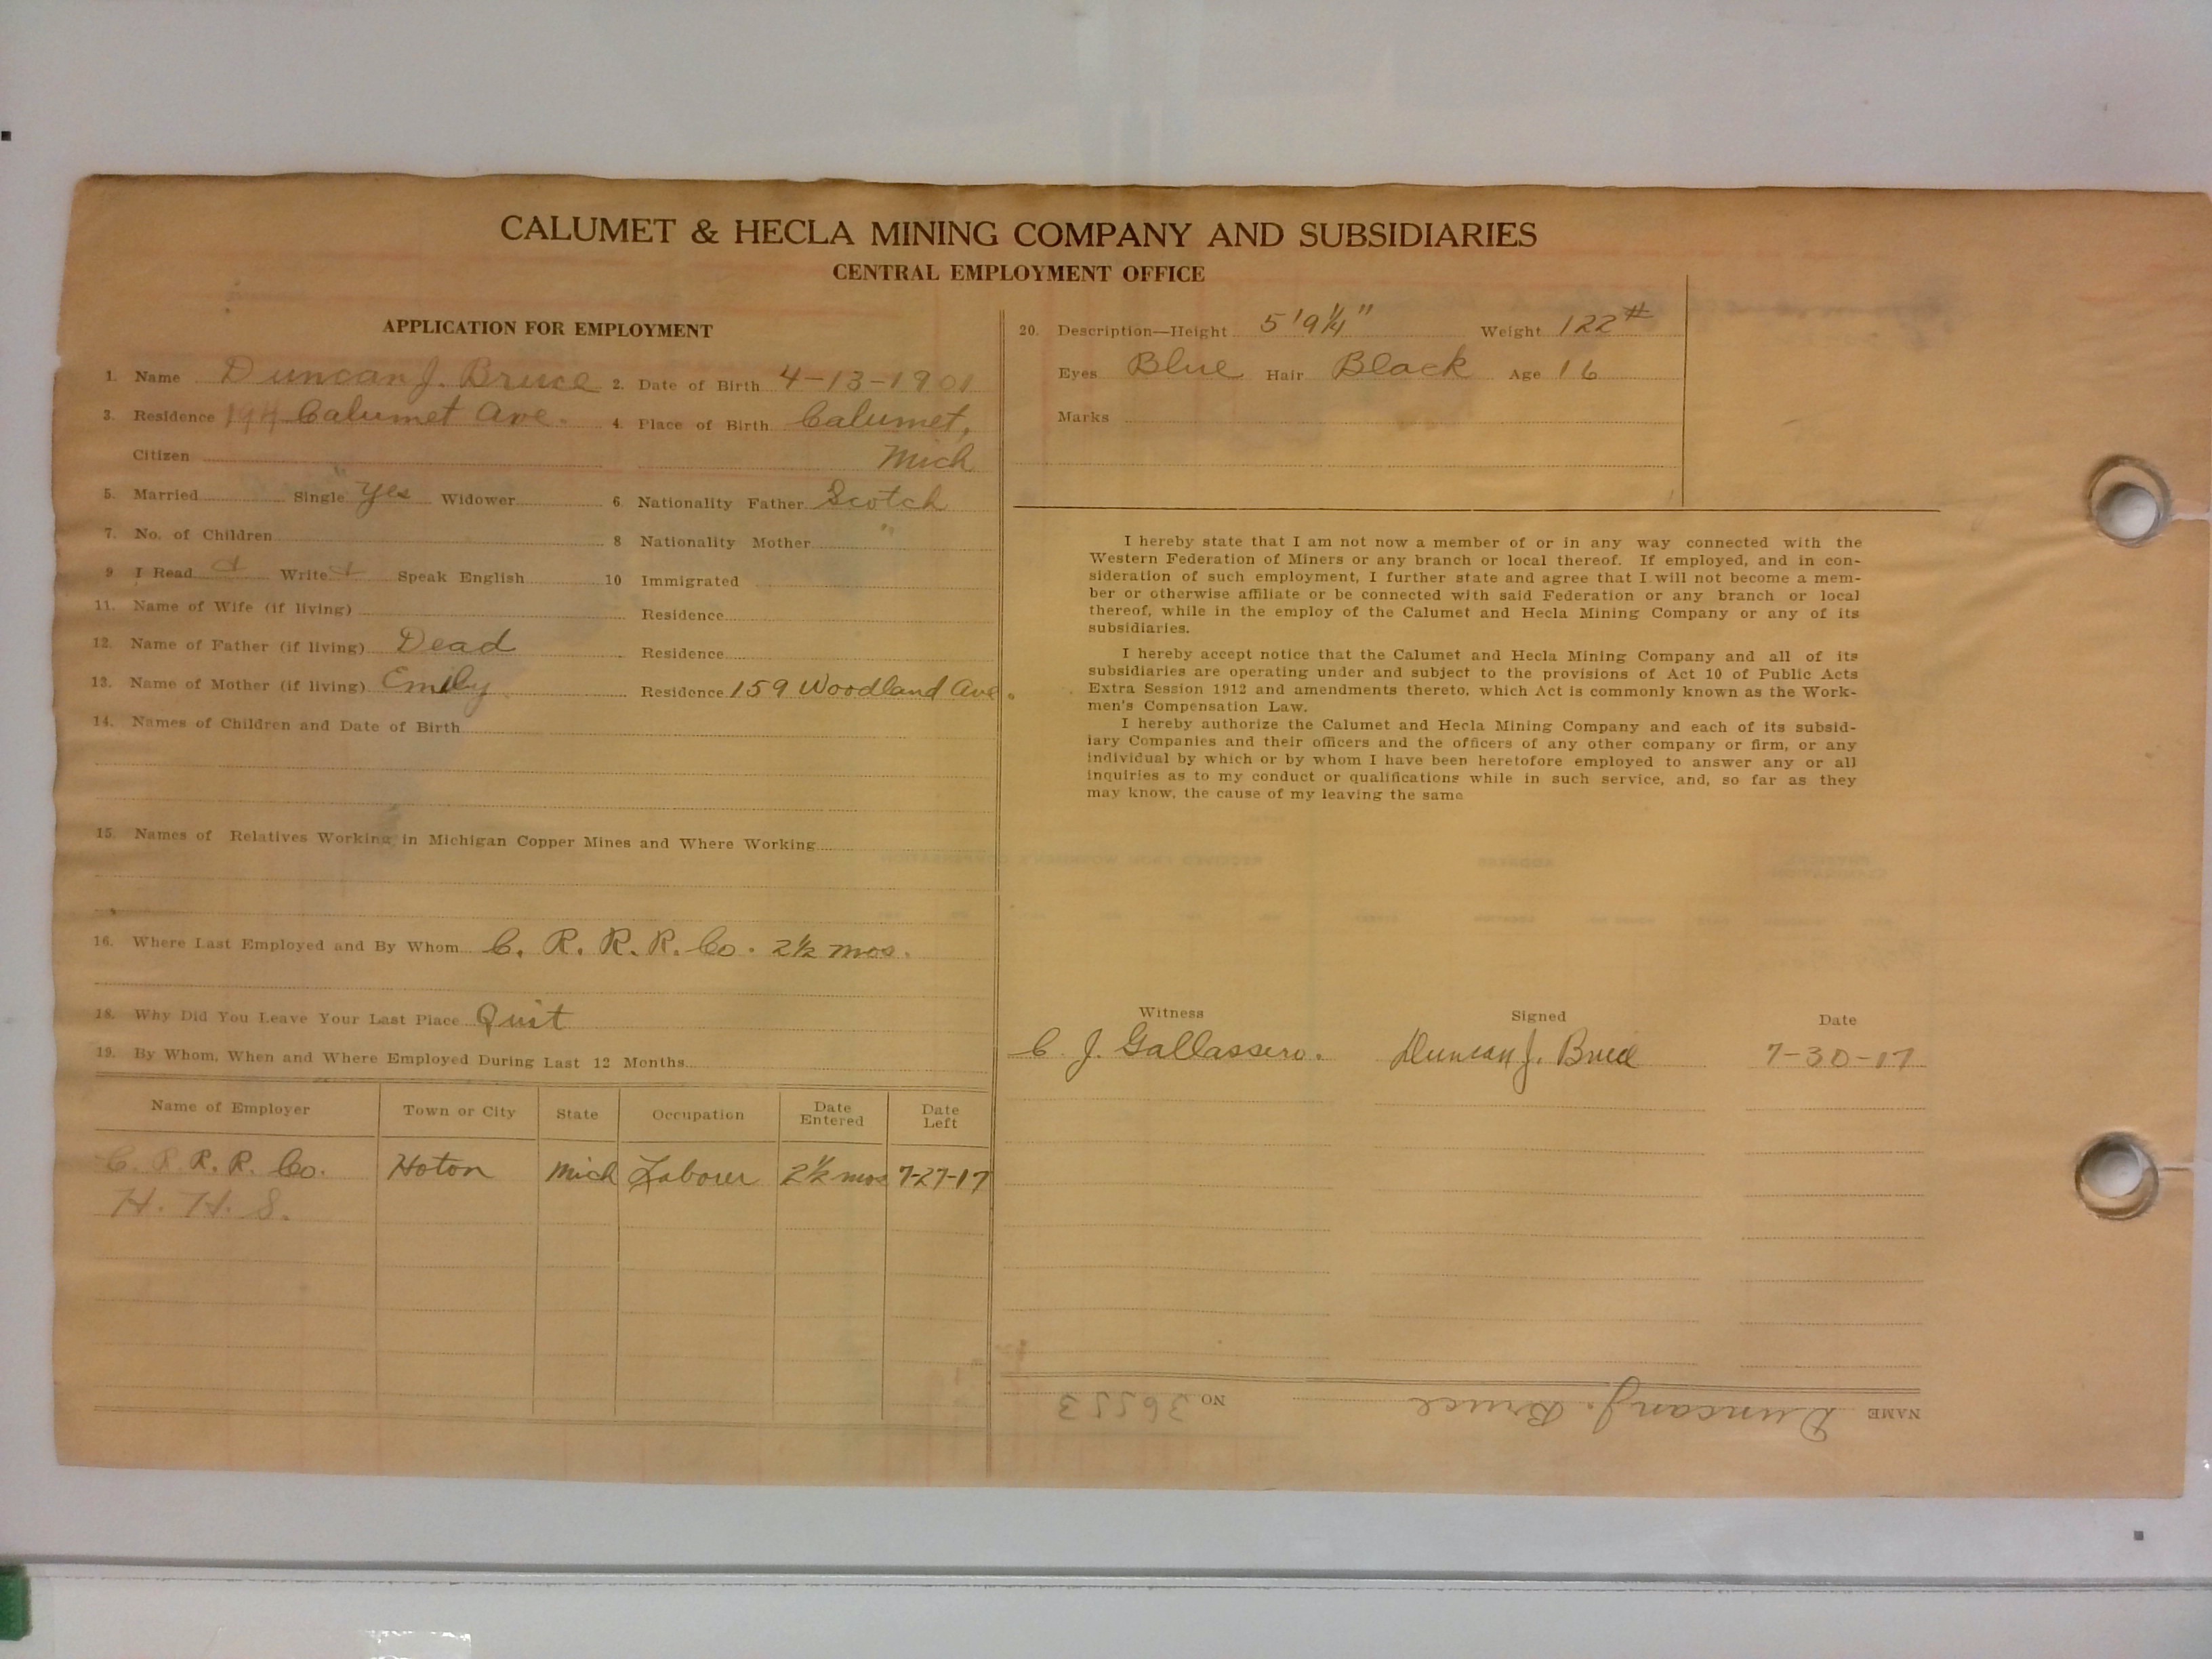 CALUMET & HECLA MINING COMPANY AND SUBSIDIARIES
CENTRAL EMPLOYMENT OFFICE
APPLICATION FOR EMPLOYMENT
1. Name Duncan J. Bruce 2. Date of Birth 4-13-1901
3. Residence 194 Calumet Ave. 4. Place of Birth Calumet,
Citizen Mich
5. Married Single Yes Widower 6. Nationality Father Scotch
7. No. of Children 8 Nationality Mother "
9 I Read Write Speak English 10 Immigrated
11. Name of Wife (if living) Residence
12. Name of Father (if living) Dead Residence
13. Name of Mother (if living) Emily Residence 159 Woodland Ave.
14. Names of Children and Date of Birth
15. Names of Relatives Working in Michigan Copper Mines and Where Working
16. Where Last Employed and By Whom C. R. R. R. Co. 2½ mos.
18. Why Did You Leave Your Last Place Quit
19. By Whom, When and Where Employed During Last 12 Months
Name of Employer Town or City State Occupation Date Entered Date Left
C. R. R. R. Co. Hoton Mich Laborer 2½ mos 7-27-17
H. H. S.
20. Description—Height 5'9¼" Weight 122#
Eyes Blue Hair Black Age 16
Marks
I hereby state that I am not now a member of or in any way connected with the
Western Federation of Miners or any branch or local thereof. If employed, and in con-
sideration of such employment, I further state and agree that I will not become a mem-
ber or otherwise affiliate or be connected with said Federation or any branch or local
thereof, while in the employ of the Calumet and Hecla Mining Company or any of its
subsidiaries.
I hereby accept notice that the Calumet and Hecla Mining Company and all of its
subsidiaries are operating under and subject to the provisions of Act 10 of Public Acts
Extra Session 1912 and amendments thereto, which Act is commonly known as the Work-
men's Compensation Law.
I hereby authorize the Calumet and Hecla Mining Company and each of its subsid-
iary Companies and their officers and the officers of any other company or firm, or any
individual by which or by whom I have been heretofore employed to answer any or all
inquiries as to my conduct or qualifications while in such service, and, so far as they
may know, the cause of my leaving the same
Witness Signed Date
C. J. Gallassero. Duncan J. Bruce 7-30-17
NAME Duncan J. Bruce NO 36553